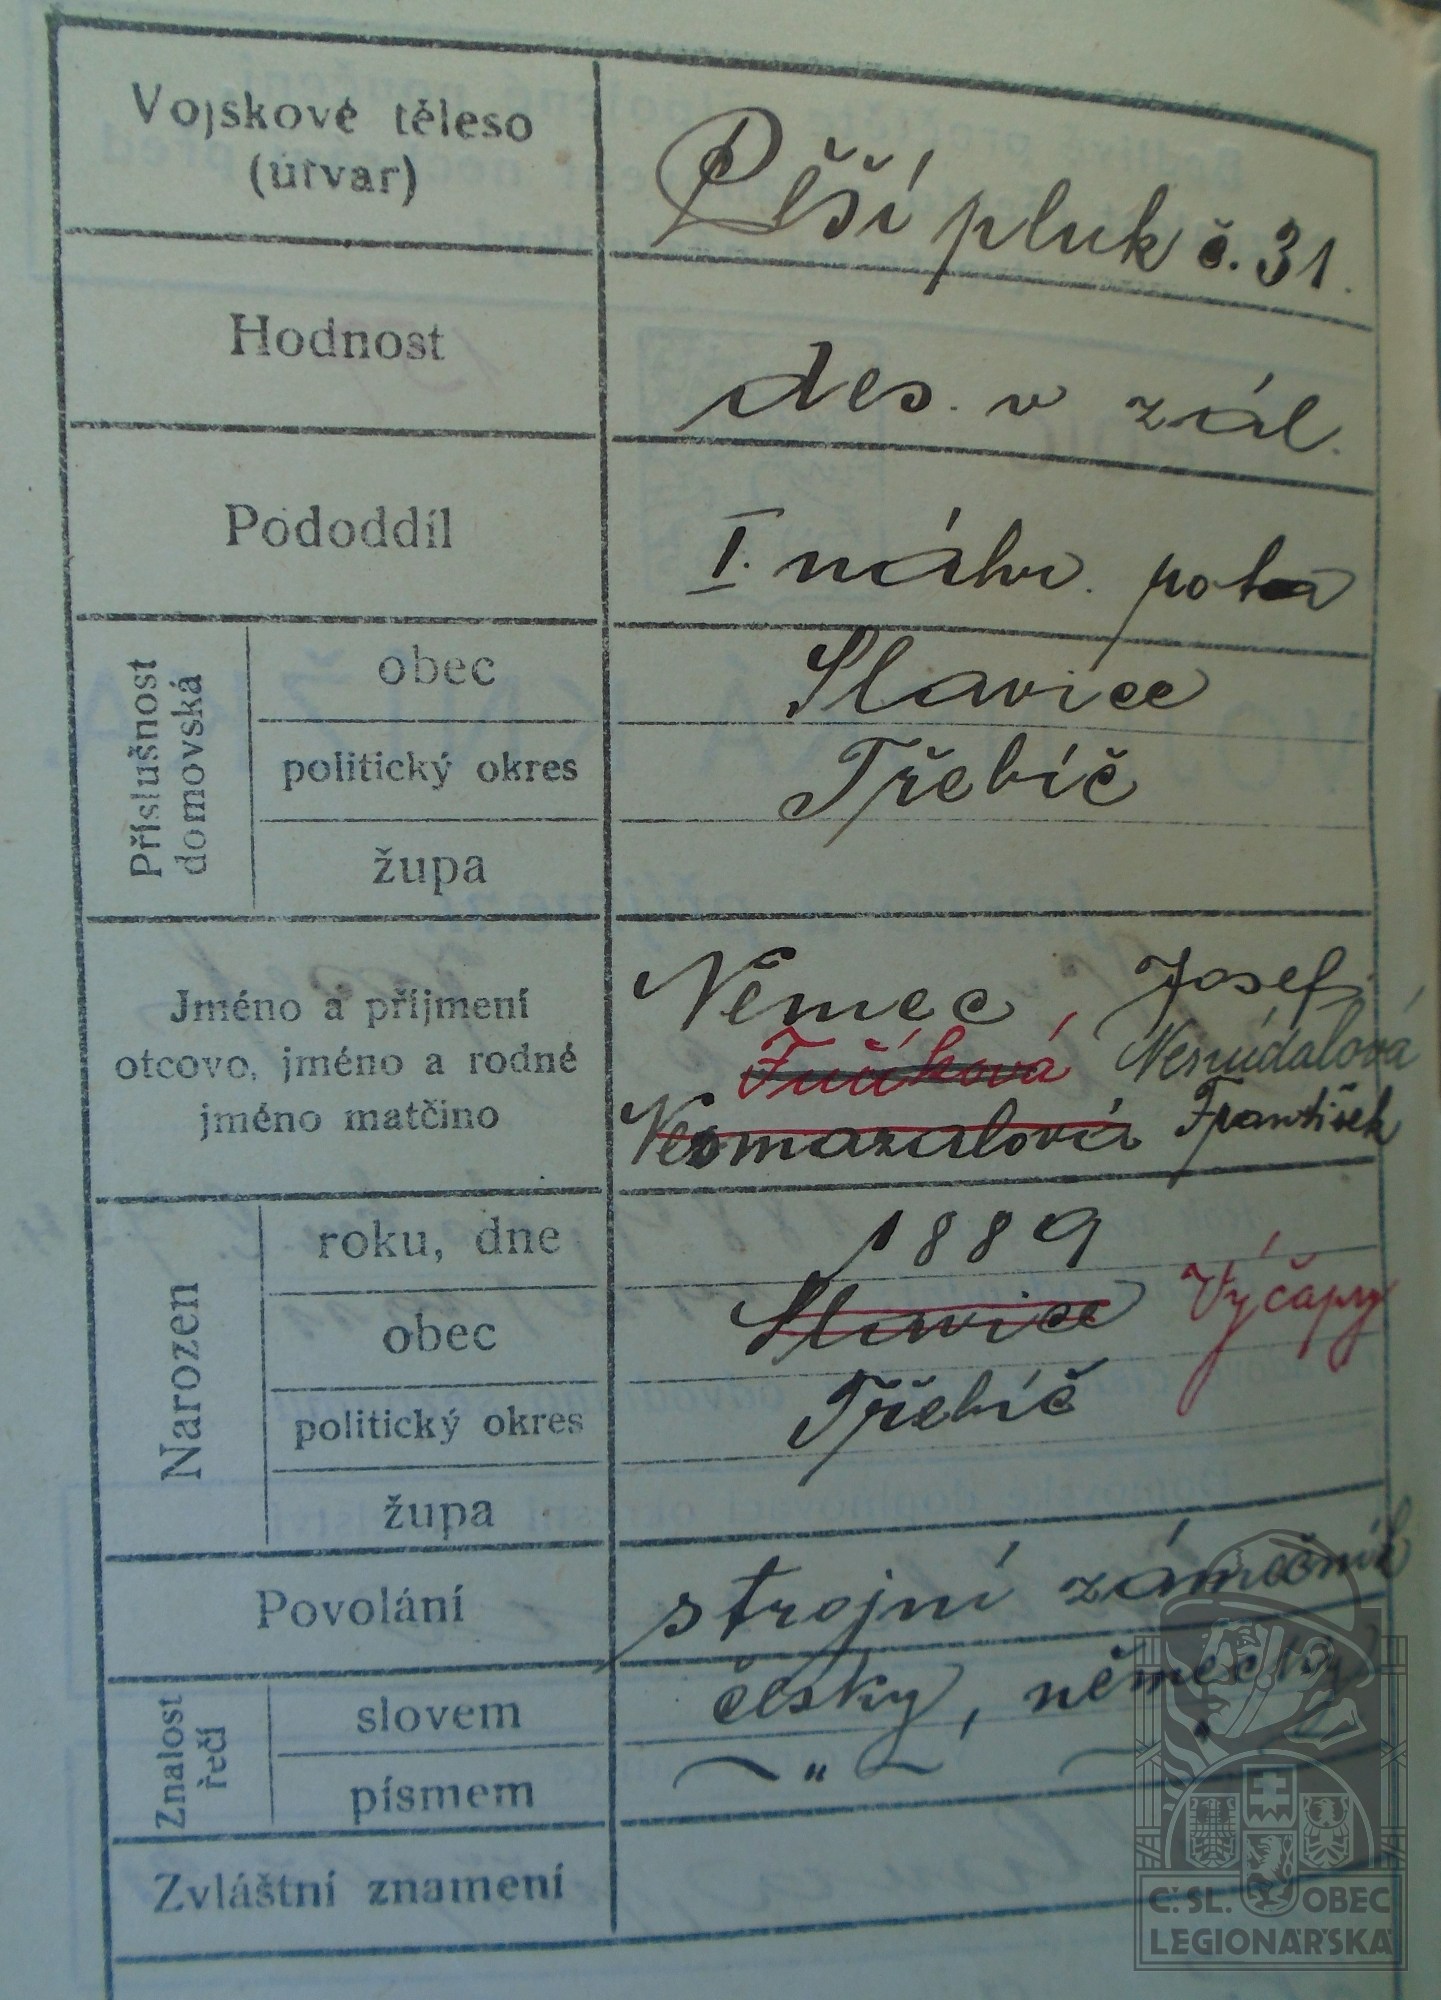 Vojskové těleso
(útvar)
Pěší pluk č. 31.
Hodnost
des. v zál.
Pododdíl
I. náhr. rota
Příslušnost
domovská
obec
Slavice
politický okres
Třebíč
župa
Jméno a příjmení
otcovo, jméno a rodné
jméno matčino
Němec Josef
Fučíková Nesnídalová
Nesmazalová František
Narozen
roku, dne
1889
obec
Slavice Výčapy
politický okres
Třebíč
župa
Povolání
strojní zámečník
Znalost
řečí
slovem
česky, německy
písmem
— „ —
Zvláštní znamení
Č. SL. OBEC
LEGIONÁŘSKÁ